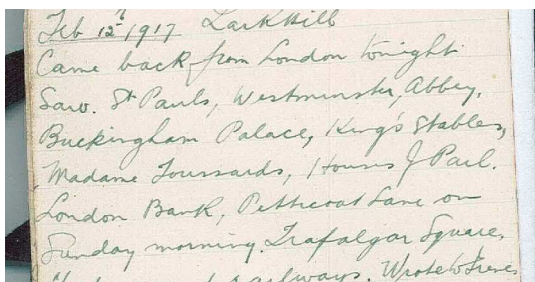 Feb 12th 1917 Larkhill
Came back from London tonight
Saw. St Pauls, Westminster, Abbey,
Buckingham Palace, King's Stables,
Madame Toussards, Houses of Parl.
London Bank, Petticoat Lane on
Sunday morning. Trafalgar Square,
railways. Wrote to